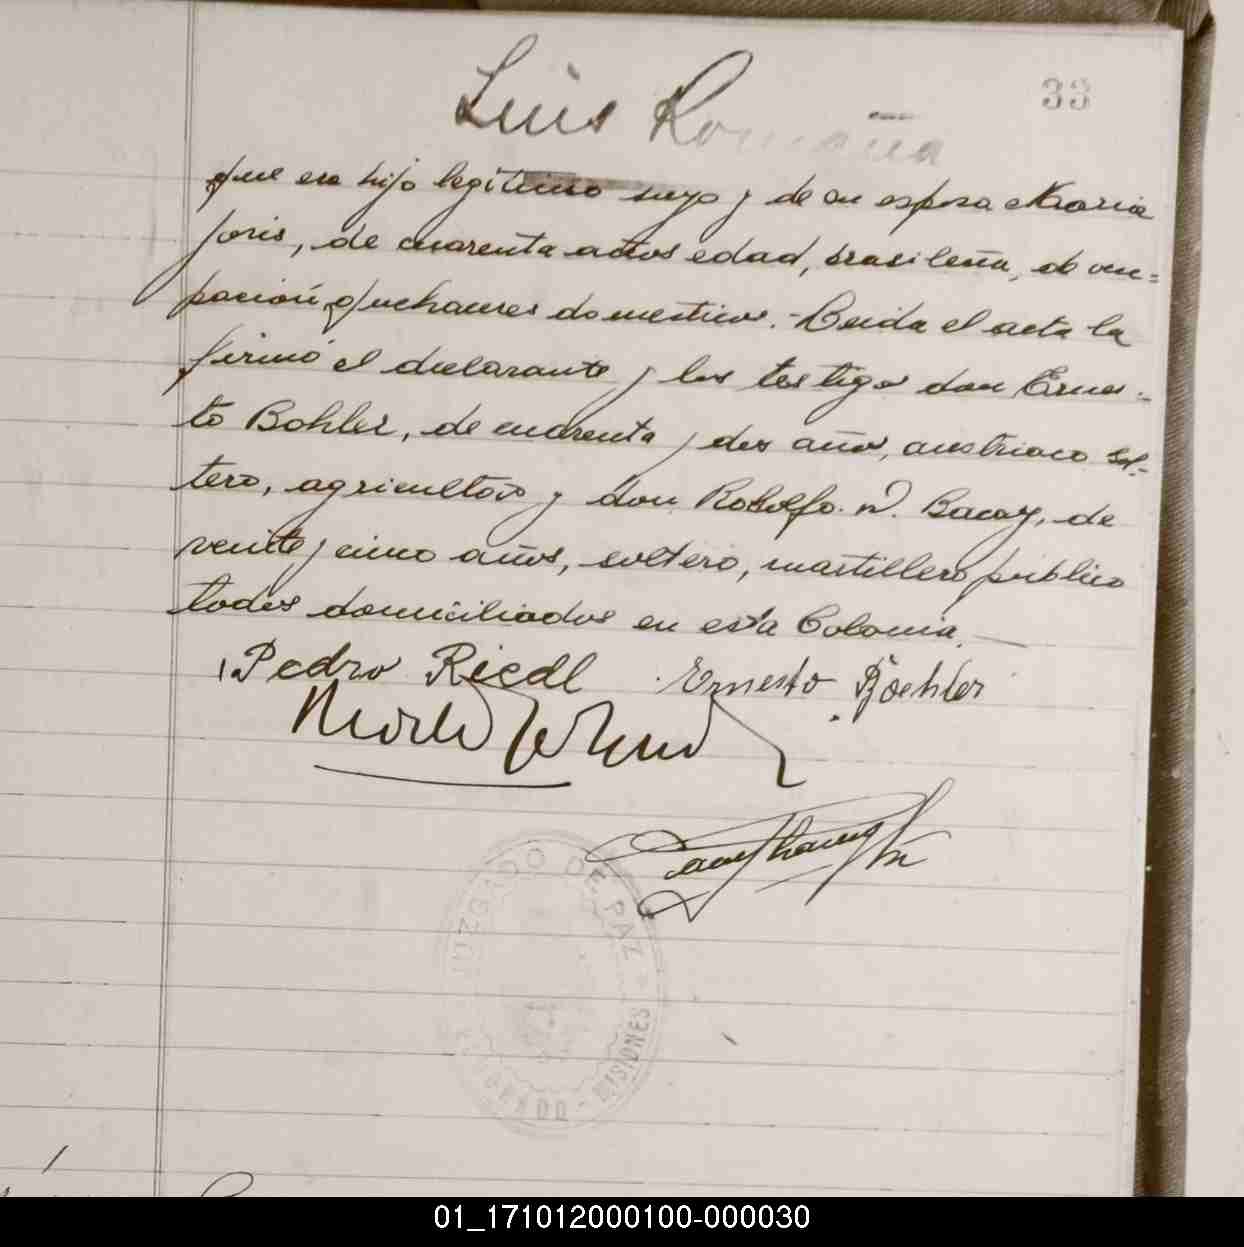 Luis Romaña
33
que era hijo legítimo suyo y de su esposa Maria
Joris, de cuarenta años edad, brasileña, de ocu=
pación quehaceres domesticos.- Leida el acta la
firmó el declarante y los testigos don Ernes-
to Bohler, de cuarenta y dos años, austriaco sol-
tero, agricultor y don Rodolfo. N. Bacay, de
veinte y cinco años, soltero, martillero público
todos domiciliados en esta Colonia.
Pedro Riedl Ernesto Boehler
JUZGADO DE PAZ
ELDORADO - MISIONES
01_171012000100-000030